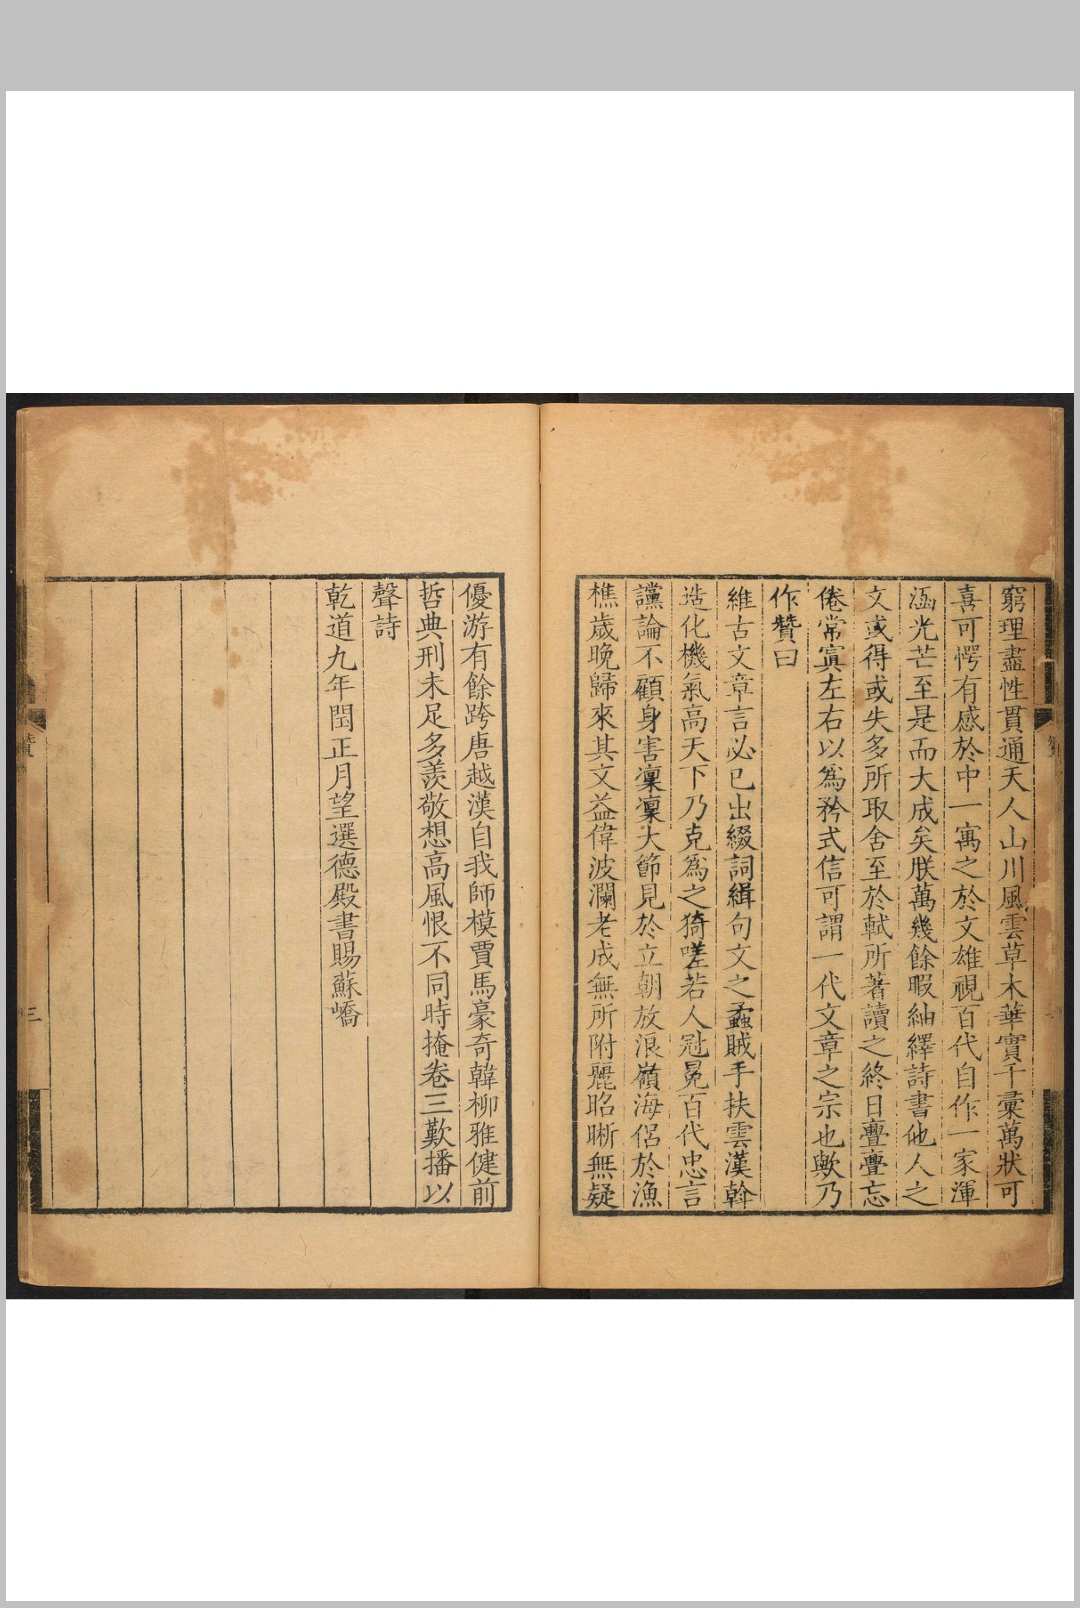 窮理盡性貫通天人山川風雲草木華實千彙萬狀可
喜可愕有感於中一寓之於文雄視百代自作一家渾
涵光芒至是而大成矣朕萬幾餘暇紬繹詩書他人之
文或得或失多所取舍至於軾所著讀之終日亹亹忘
倦常寘左右以為矜式信可謂一代文章之宗也歟乃
作贊曰
維古文章言必己出綴詞緝句文之蟊賊手扶雲漢斡
造化機氣高天下乃克為之猗嗟若人冠冕百代忠言
讜論不顧身害凜凜大節見於立朝放浪嶺海侶於漁
樵歲晚歸來其文益偉波瀾老成無所附麗昭晣無疑
優游有餘跨唐越漢自我師模賈馬豪奇韓柳雅健前
哲典刑未足多羨敬想高風恨不同時掩卷三歎播以
聲詩
乾道九年閏正月望選德殿書賜蘇嶠
贊
三